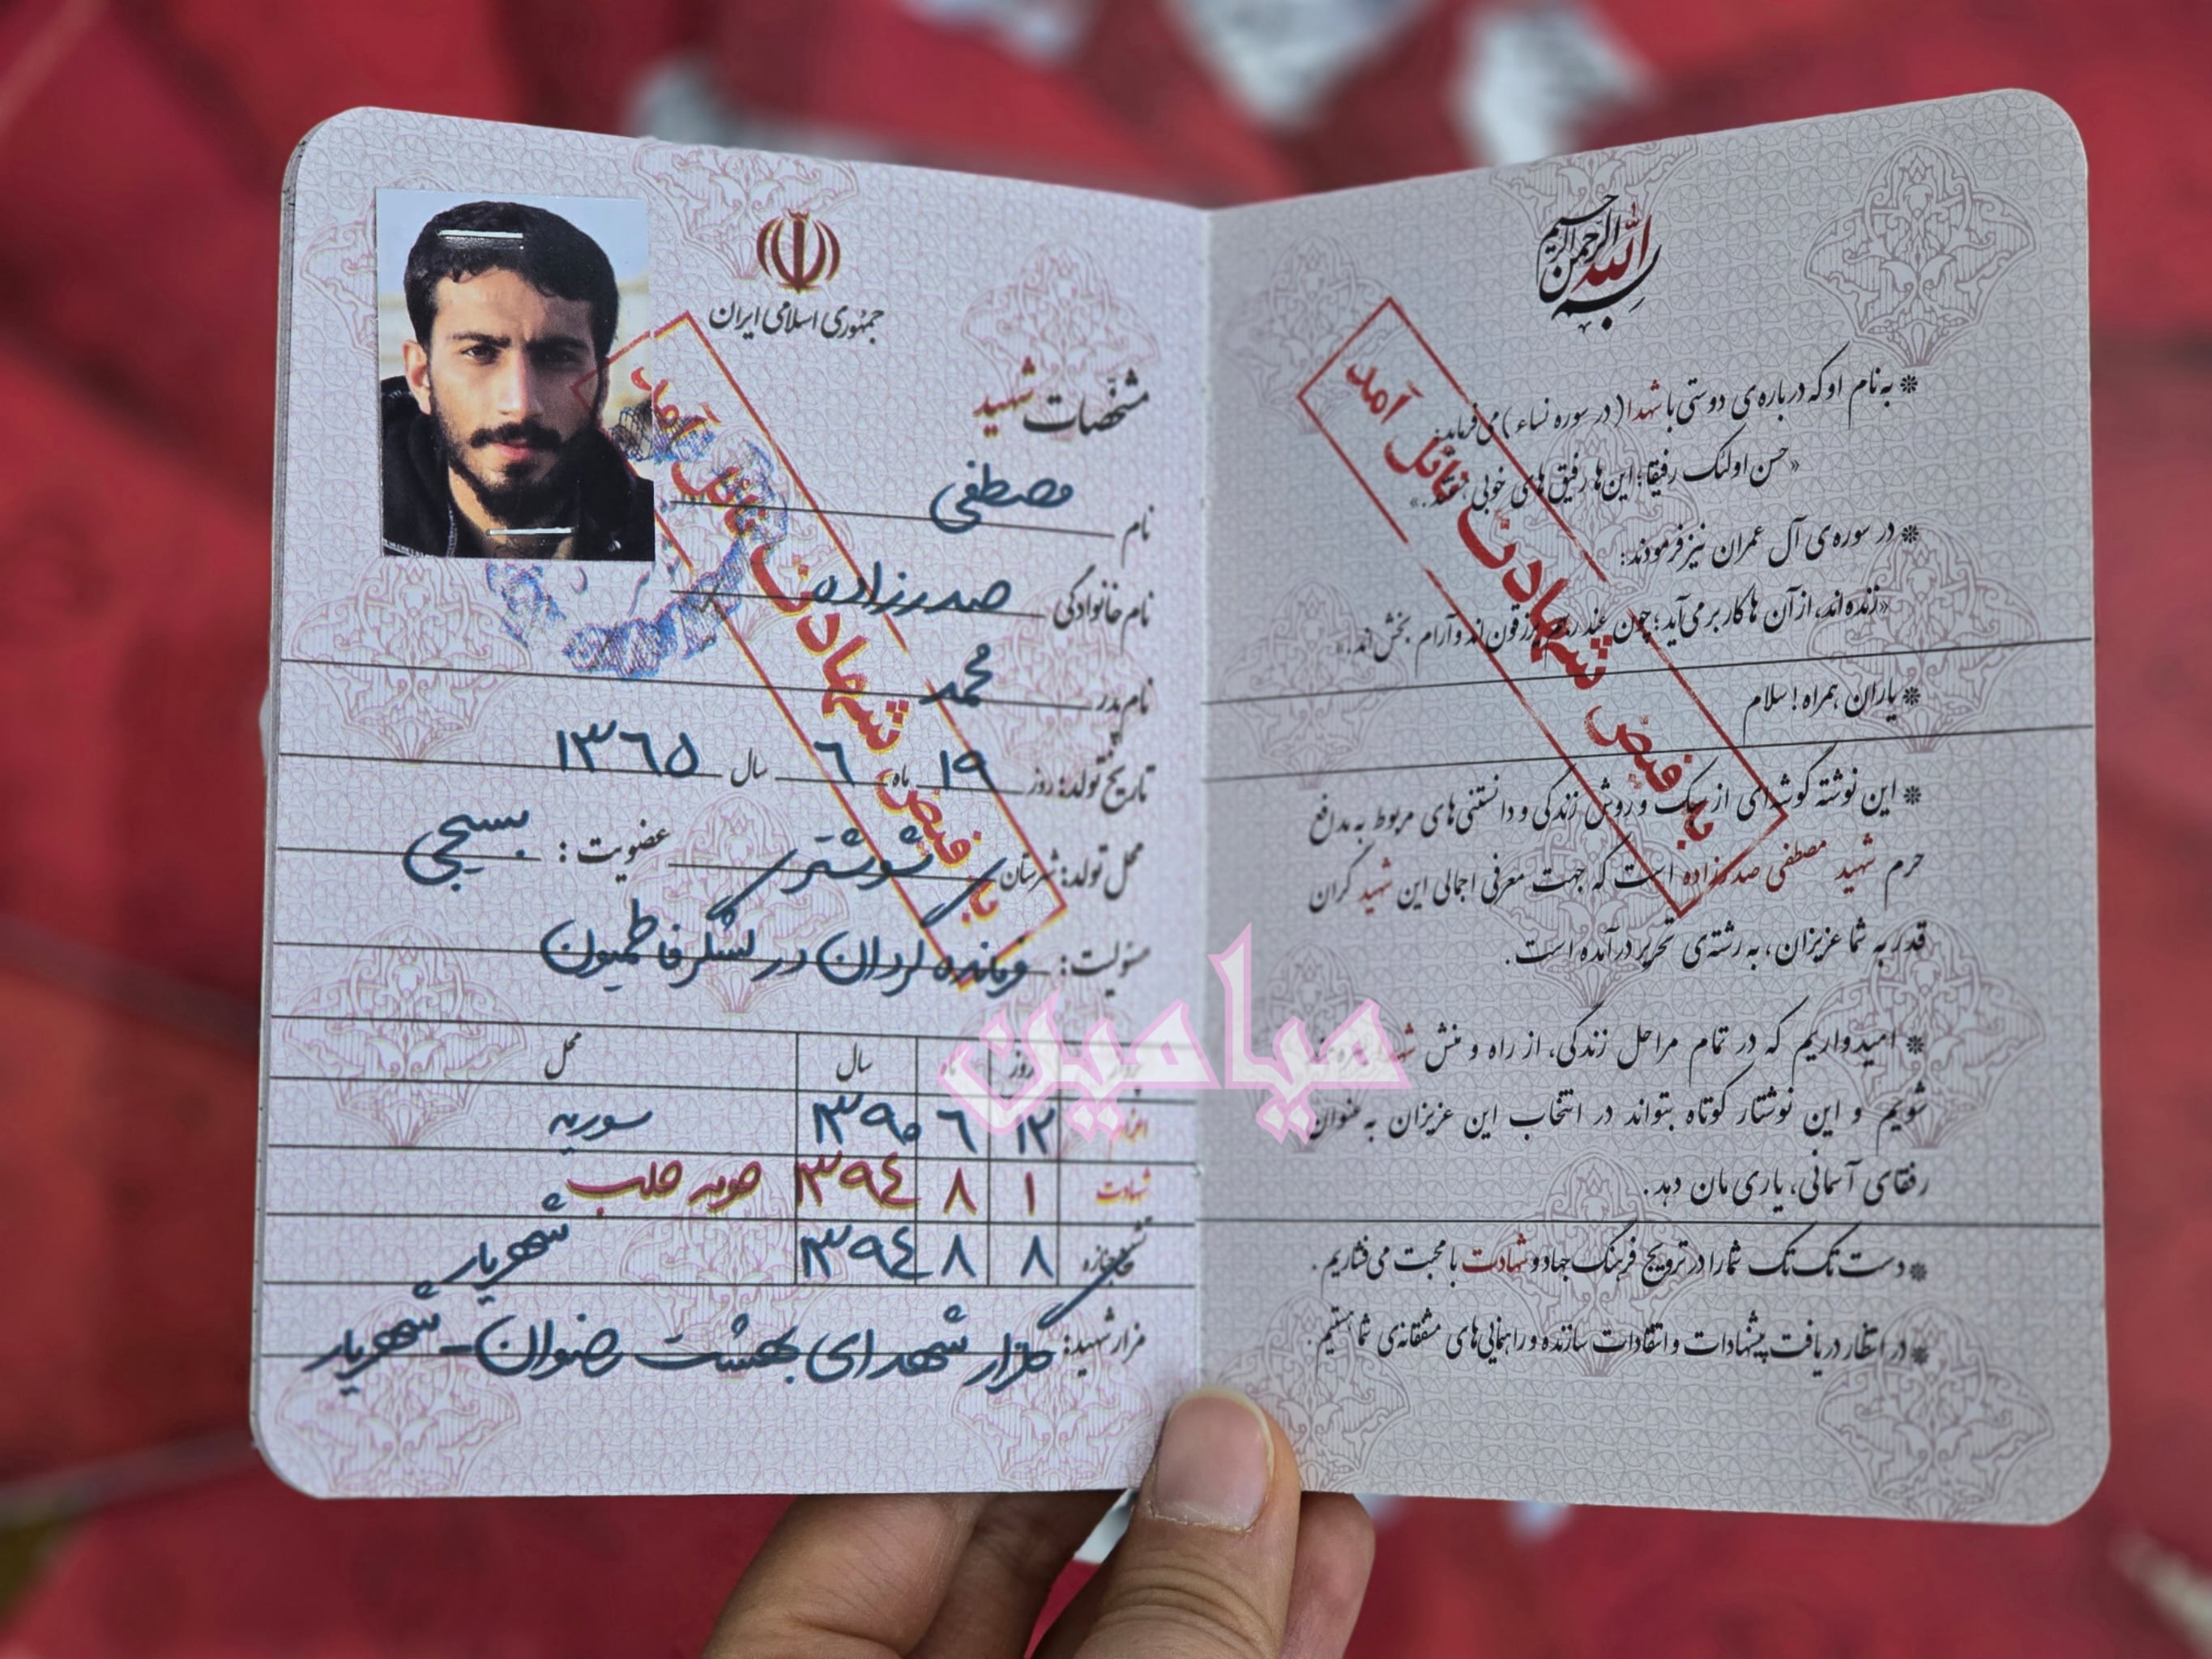 بسم الله الرحمن الرحیم
* به نام او که درباره‌ی دوستی با شهدا (در سوره نساء) می‌فرماید:
«حسن اولئک رفیقا؛ این‌ها رفیق های خوبی هستند.»
* در سوره‌ی آل عمران نیز فرمودند:
«زنده‌اند، از آن ها کار بر می‌آید؛ چون عند ربهم یرزقون‌اند و آرام بخش‌اند.»
* یاران همراه! سلام
* این نوشته گوشه‌ای از سبک و روش زندگی و دانستنی‌های مربوط به مدافع
حرم شهید مصطفی صدرزاده است که جهت معرفی اجمالی این شهید گران
قدر به شما عزیزان، به رشته‌ی تحریر درآمده است.
* امیدواریم که در تمام مراحل زندگی، از راه و منش
شویم و این نوشتار کوتاه بتواند در انتخاب این عزیزان به عنوان
رفقای آسمانی، یاری مان دهد.
* دست تک تک شما را در ترویج فرهنگ جهاد و شهادت با محبت می‌فشاریم.
* در انتظار دریافت پیشنهادات و انتقادات سازنده و راهنمایی‌های مشفقانه‌ی شما هستیم.
به فیض شهادت نائل آمد
جمهوری اسلامی ایران
مشخصات شهید
نام مصطفی
نام خانوادگی صدرزاده
نام پدر محمد
تاریخ تولد: روز ۱۹ ماه ۶ سال ۱۳۶۵
محل تولد: شهرستان شوشتر عضویت: بسیجی
مسئولیت: فرمانده گردان در لشگر فاطمیون
روز ماه سال محل
اعزام ۱۲ ۶ ۱۳۹۰ سوریه
شهادت ۱ ۸ ۱۳۹۴ حومه حلب
تشییع جنازه ۸ ۸ ۱۳۹۴ شهریار
مزار شهید: گلزار شهدای بهشت رضوان - شهریار
به فیض شهادت نائل آمد
میامین